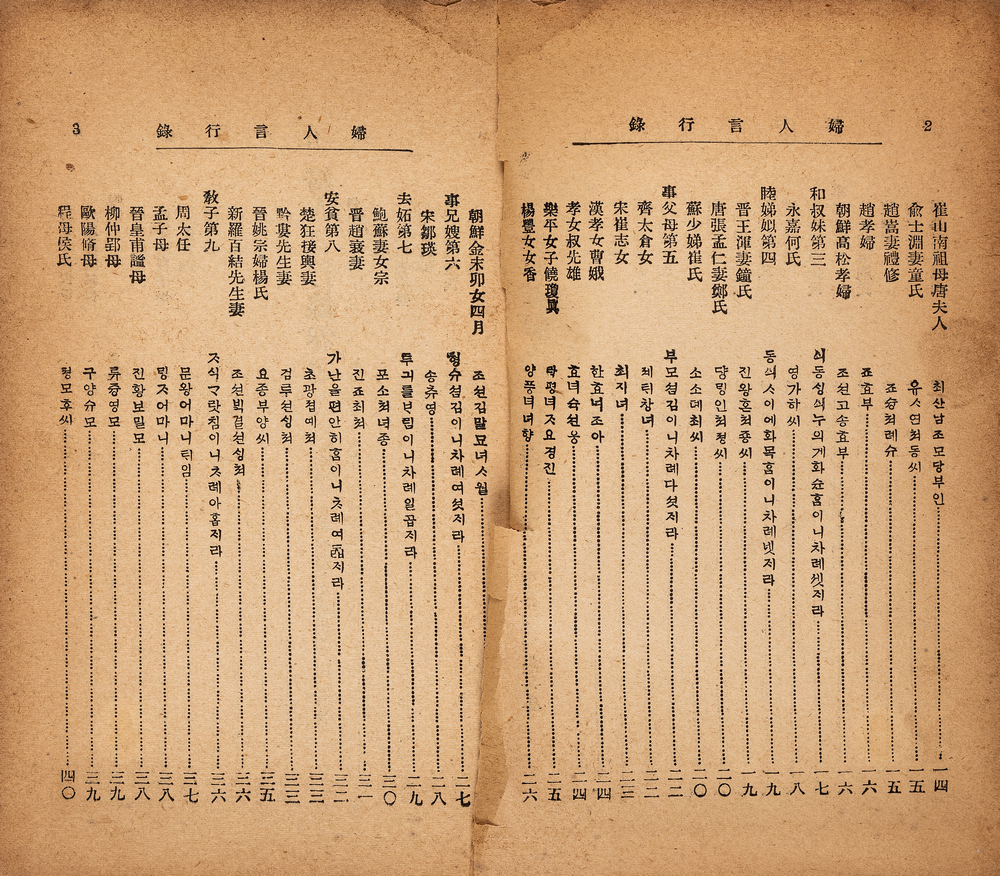 2
婦人言行錄
崔山南祖母唐夫人 최산남조모당부인 一四
兪士淵妻童氏 유ᄉ연쳐동씨 一五
趙嵩妻禮修 죠슝쳐례슈 一五
趙孝婦 죠효부 一六
朝鮮高松孝婦 조션고송효부 一六
和叔妹第三 싀동싱싀누의게화슌홈이니차례셋지라 一七
永嘉何氏 영가하씨 一八
睦娣姒第四 동싀ᄉ이에화목홈이니차례넷지라 一九
晋王渾妻鐘氏 진왕혼쳐죵씨 一九
唐張孟仁妻鄭氏 당밍인쳐졍씨 二〇
蘇少娣崔氏 소소뎨최씨 二〇
事父母第五 부모셤김이니차례다섯지라 二二
齊太倉女 졔틱창녀 二二
宋崔志女 최지녀 二三
漢孝女曹娥 한효녀조아 二四
孝女叔先雄 효녀슉션웅 二四
樂平女子饒瓊異 락평녀ᄌ요경진 二五
楊豐女女香 양풍녀녀향 二六
3
婦人言行錄
朝鮮金末卯女四月 조션김말묘녀ᄉ월
事兄嫂第六 형슈셤김이니차례여섯지라 二七
宋鄒瑛 송츄영 二八
去妬第七 투긔를ᄇ림이니차례일곱지라 二九
鮑蘇妻女宗 포소쳐녀종 三〇
晋趙衰妻 진죠최쳐 三一
安貧第八 가난을편안히홈이니ᄎ례여덟지라 三二
楚狂接輿妻 초광졉여쳐 三三
黔婁先生妻 검루션싱쳐 三三
晉姚宗婦楊氏 요종부양씨 三五
新羅百結先生妻 조션빅결션싱쳐 三六
敎子第九 ᄌ식ᄀᄅ침이니ᄎ례아홉지라 三六
周太任 문왕어마니틱임 三七
孟子母 밍ᄌ어마니 三八
晉皇甫謐母 진황보밀모 三八
柳仲郢母 류즁영모 三九
歐陽脩母 구양슈모 三九
程母侯氏 졍모후씨 四〇